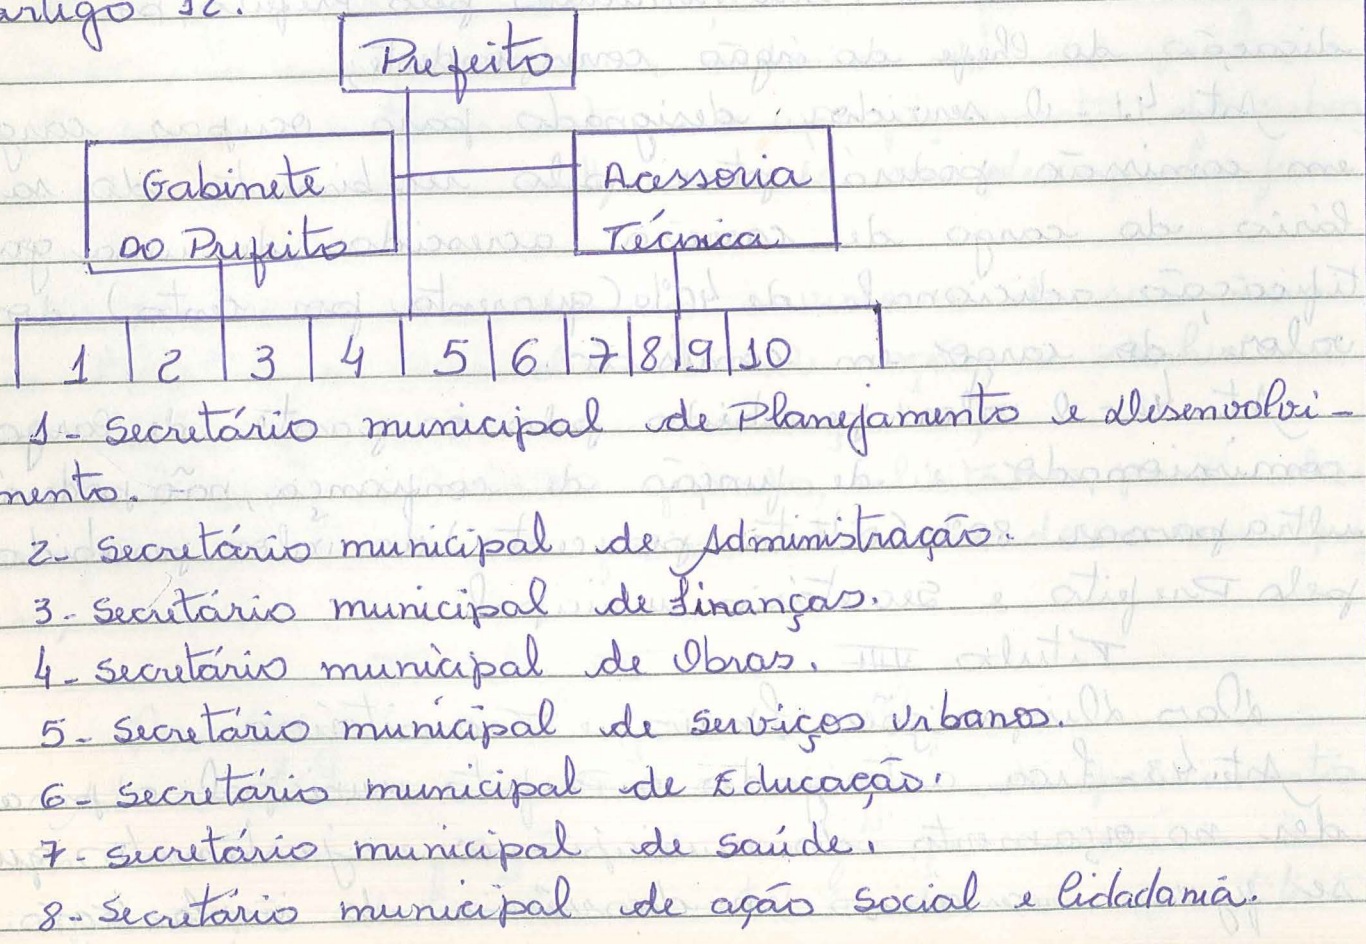 artigo 12.
Prefeito
Gabinete
DO Prefeito
Acessoria
Técnica
1 2 3 4 5 6 7 8 9 10
1- Secretário municipal de Planejamento e desenvolvi-
mento.
2- Secretário municipal de Administração.
3- Secretário municipal de finanças.
4- Secretário municipal de Obras.
5- Secretário municipal de Serviços Urbanos.
6- Secretário municipal de Educação.
7- Secretário municipal de saúde.
8- Secretário municipal de ação social e Cidadania.